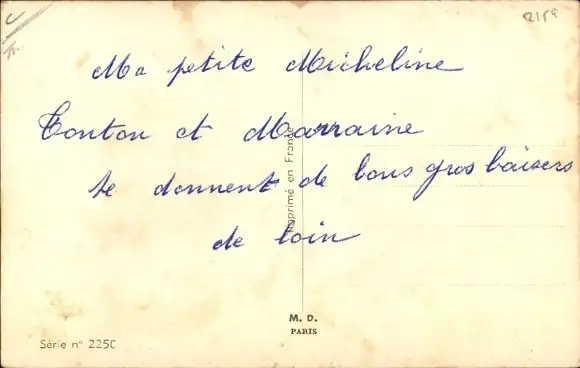 Ma petite Micheline
Tonton et Marraine
te donnent de bons gros baisers
de loin
Imprimé en France
M. D.
PARIS
Série n° 225C